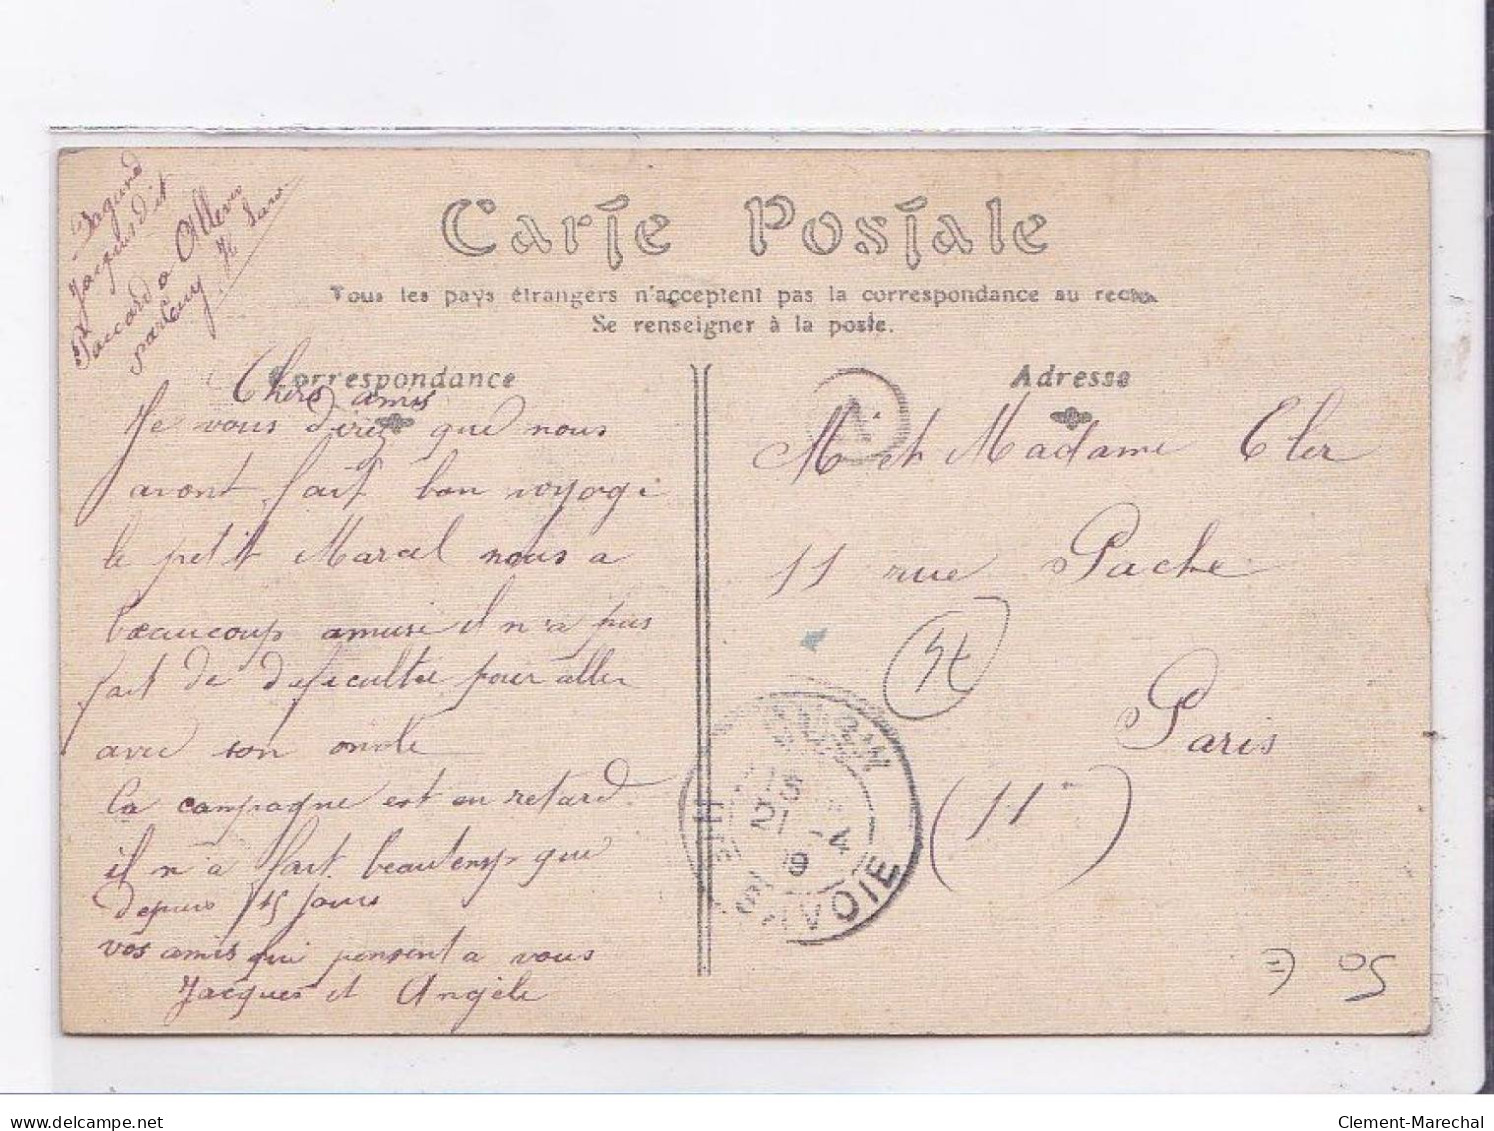 Jacques dit
Paccard a Allèves
par Cusy H Savoie
Carte Postale
Tous les pays étrangers n'acceptent pas la correspondance au recto
Se renseigner à la poste.
Correspondance
Chers amis
Je vous direz que nous
avont fait bon voyage
le petit Marcel nous a
beaucoup amusé il n'a pas
fait de dificultée pour aller
avec son oncle
La campagne est en retard
il n'a fait beautemp que
depuis 15 jours
vos amis qui pensent a vous
Jacques et Angèle
Adresse
A
Mr et Madame Eler
11 rue Pache
Paris
(11e)
SAVOIE
E 05
delcampe.net
Clement-Marechal